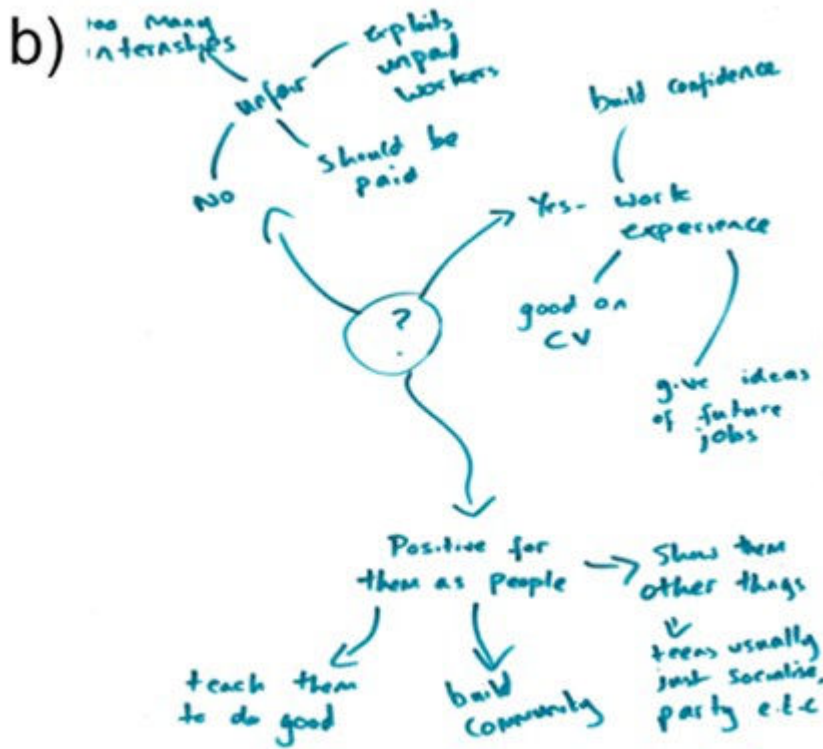 b)
too many
internships
unfair
exploits
unpaid
workers
should be
paid
NO
build confidence
Yes - work
experience
good on
CV
give ideas
of future
jobs
?
Positive for
them as people
show them
other things
teens usually
just socialise,
party e.t.c
teach them
to do good
build
community